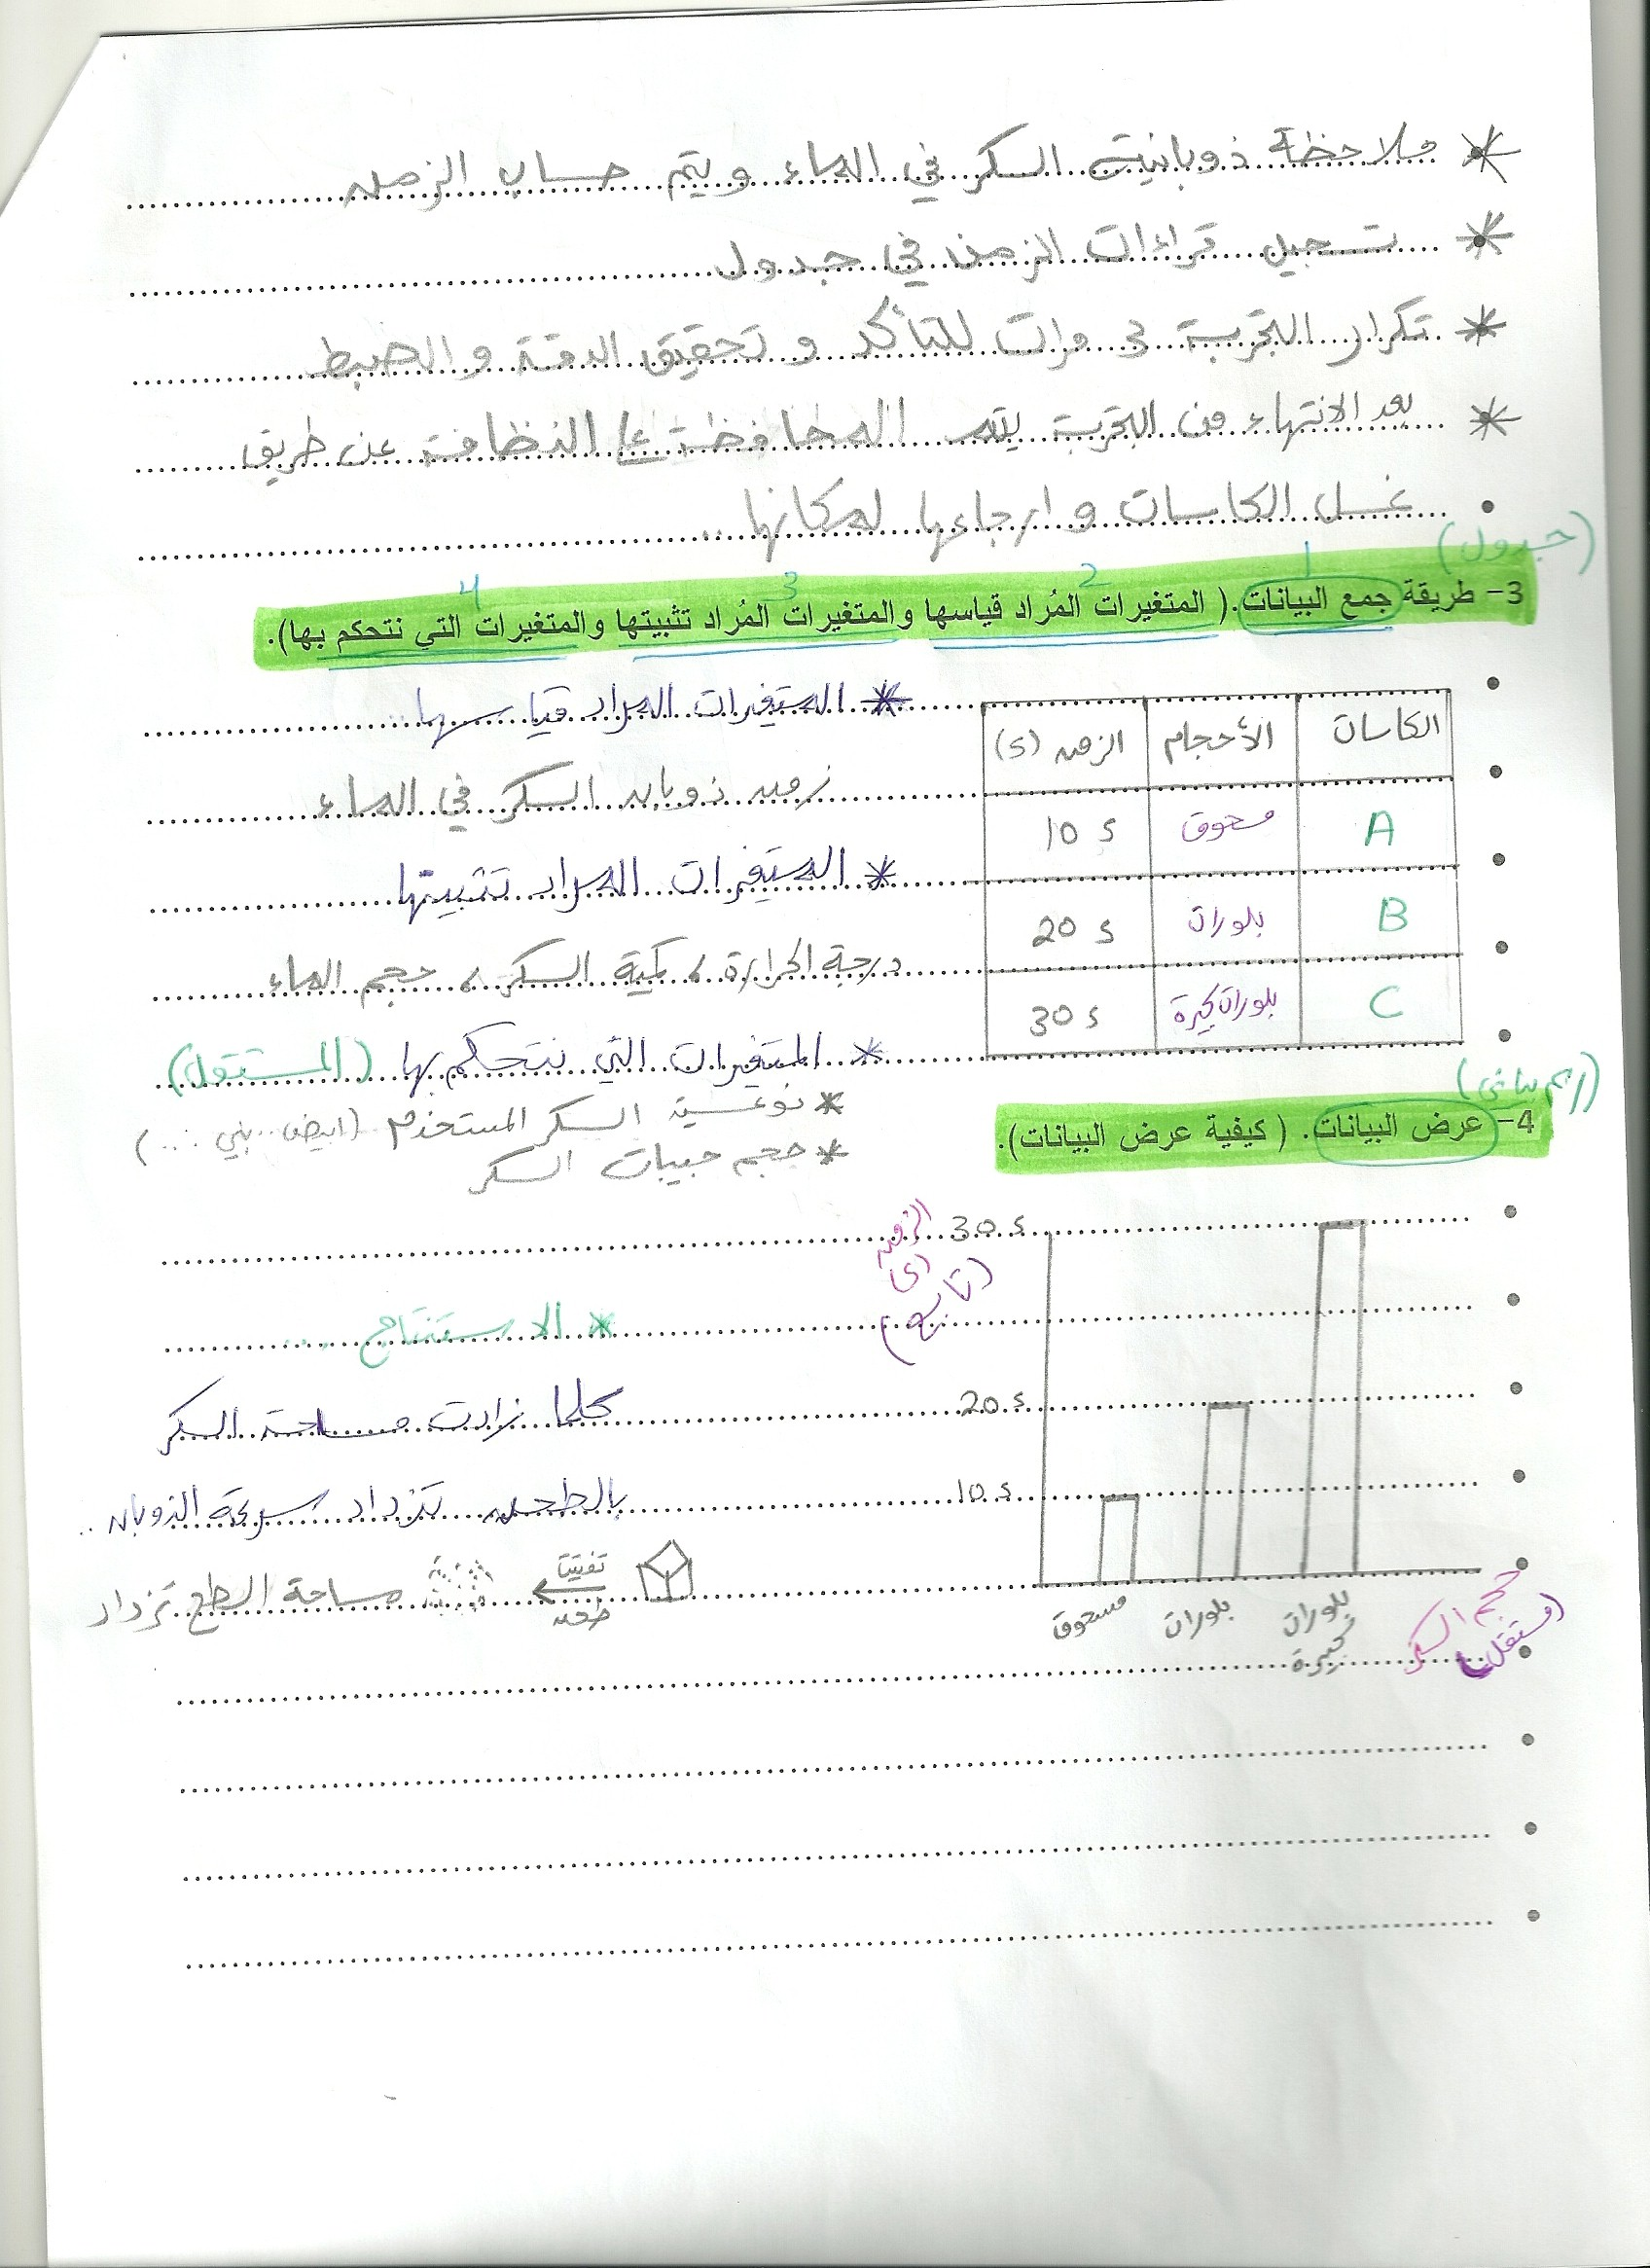 * ملاحظة ذوبانية السكر في الماء ويتم حساب الزمن
* تسجيل قراءات الزمن في جدول
* تكرار التجربة 3 مرات للتأكد و تحقيق الدقة والضبط
* بعد الانتهاء من التجربة يتم المحافظة على النظافة عن طريق
غسل الكاسات و ارجاعها لمكانها ..
(جدول)
1 2 3 4
3- طريقة جمع البيانات. ( المتغيرات المُراد قياسها والمتغيرات المُراد تثبيتها والمتغيرات التي نتحكم بها).
الكاسات الأحجام الزمن (s)
A مسحوق 10 s
B بلورات 20 s
C بلورات كبيرة 30 s
* المتغيرات المراد قياسها..
زمن ذوبان السكر في الماء
* المتغيرات المراد تثبيتها
درجة الحرارة، كمية السكر، حجم الماء
* المتغيرات التي نتحكم بها (المستقل)
* نوعية السكر المستخدم (ابيض.. بني ...)
* حجم حبيبات السكر
(رسم بياني)
4- عرض البيانات. ( كيفية عرض البيانات).
الزمن
(s)
(تابع)
30 s
20 s
10 s
مسحوق بلورات بلورات كبيرة
حجم السكر
(مستقل)
* الاستنتاج ...
كلما زادت مساحة السكر
بالطحن تزداد سرعة الذوبان ..
تفتيت
طحن
مساحة السطح تزداد